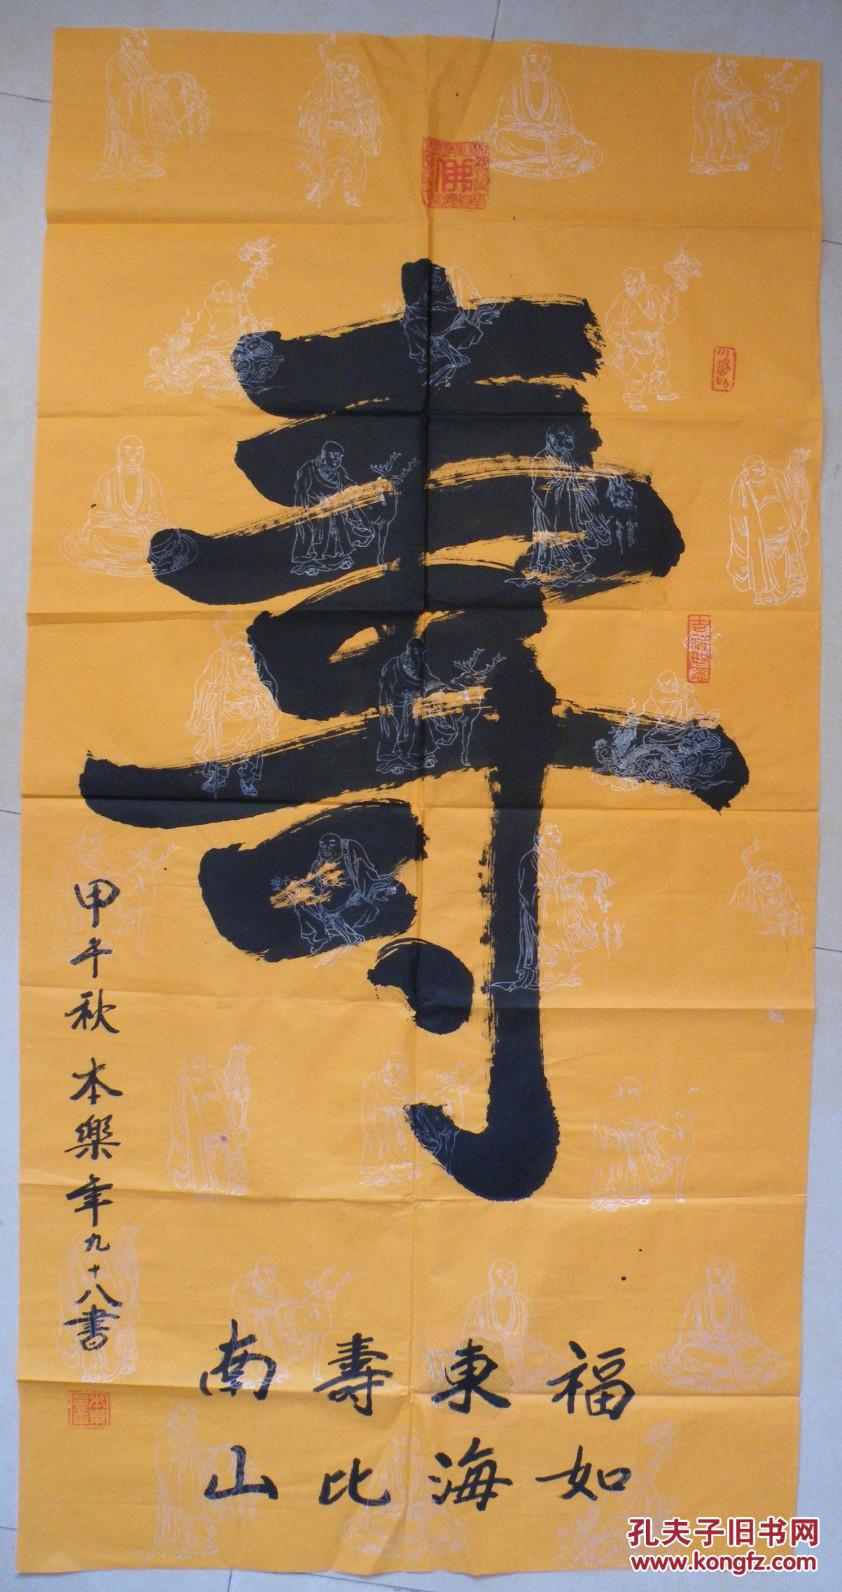 佛
壽
福如
東海
壽比
南山
甲午秋本樂年九十八書
孔夫子旧书网
www.kongfz.com